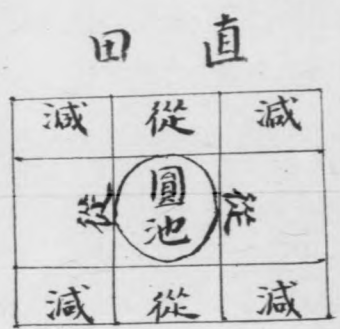 直田
減從減
從圓池從
減從減